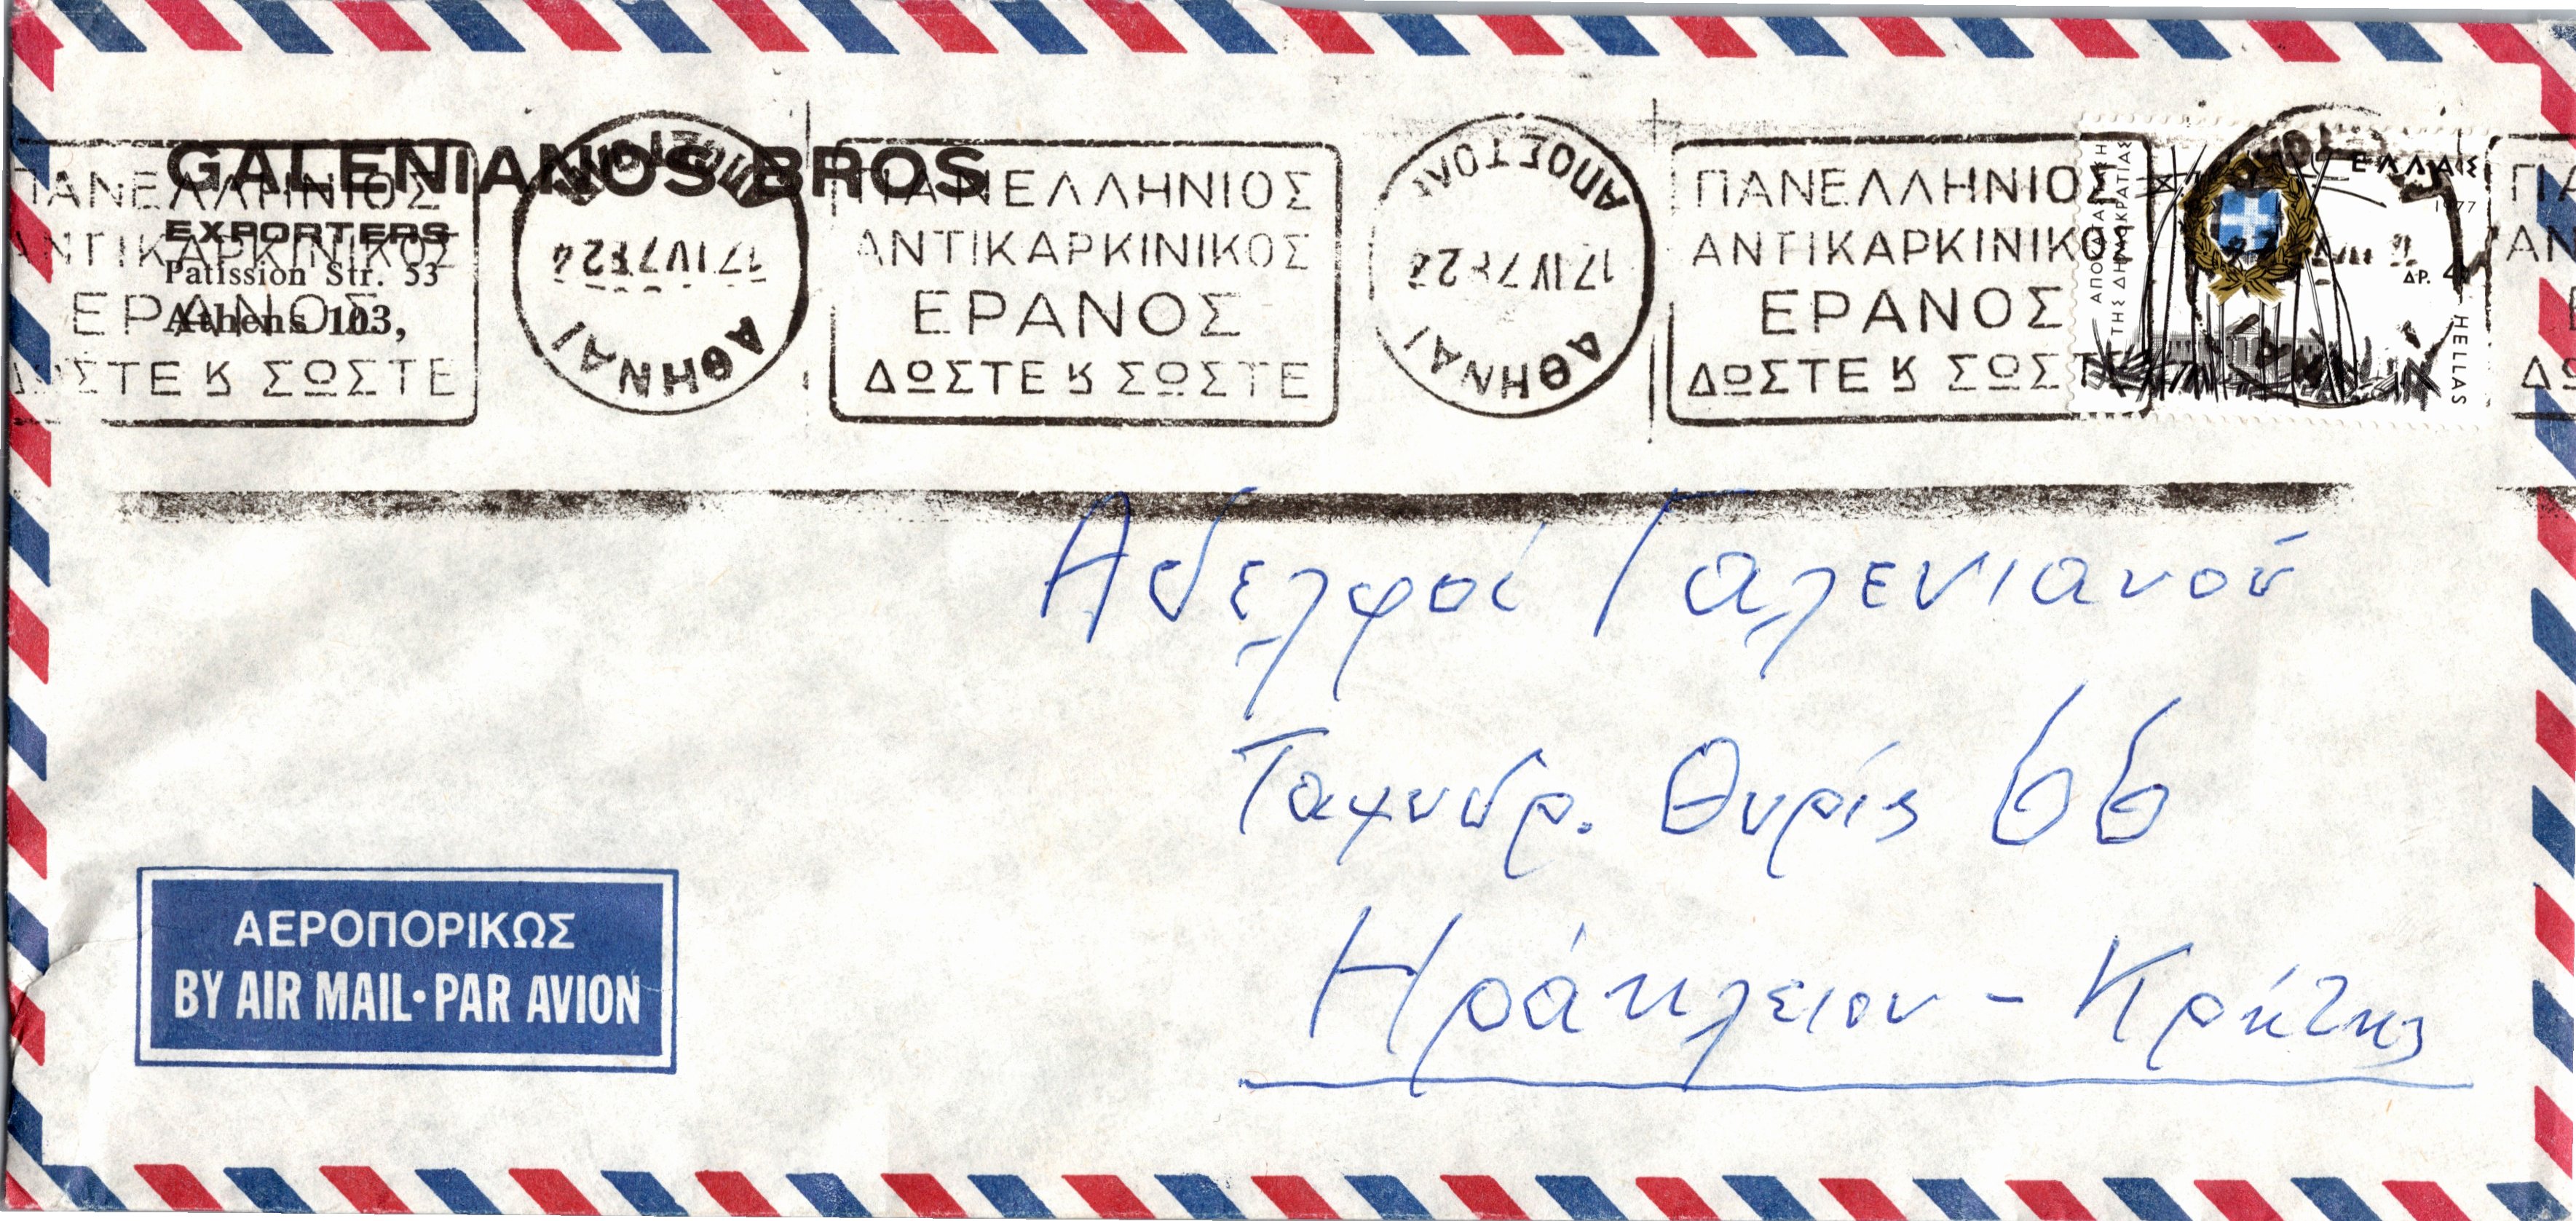 GALENIANOS BROS
EXPORTERS
Patission Str. 53
Athens 103,
ΠΑΝΕΛΛΗΝΙΟΣ
ΑΝΤΙΚΑΡΚΙΝΙΚΟΣ
ΕΡΑΝΟΣ
ΔΩΣΤΕ Κ ΣΩΣΤΕ
ΑΘΗΝΑΙ
17 IV 78 24
ΠΑΝΕΛΛΗΝΙΟΣ
ΑΝΤΙΚΑΡΚΙΝΙΚΟΣ
ΕΡΑΝΟΣ
ΔΩΣΤΕ Κ ΣΩΣΤΕ
ΑΠΟΣΤΟΛΑΙ
17 IV 78 24
ΑΘΗΝΑΙ
ΠΑΝΕΛΛΗΝΙΟΣ
ΑΝΤΙΚΑΡΚΙΝΙΚΟΣ
ΕΡΑΝΟΣ
ΔΩΣΤΕ Κ ΣΩΣΤΕ
ΑΠΟΚΑΤΑΣΤΑΣΗ
ΤΗΣ ΔΗΜΟΚΡΑΤΙΑΣ
ΕΛΛΑΣ
1977
ΔΡ. 4
HELLAS
Αδελφοί Γαλενιανού
Ταχυδρ. Θυρίς 66
Ηράκλειον - Κρήτης
ΑΕΡΟΠΟΡΙΚΩΣ
BY AIR MAIL·PAR AVION